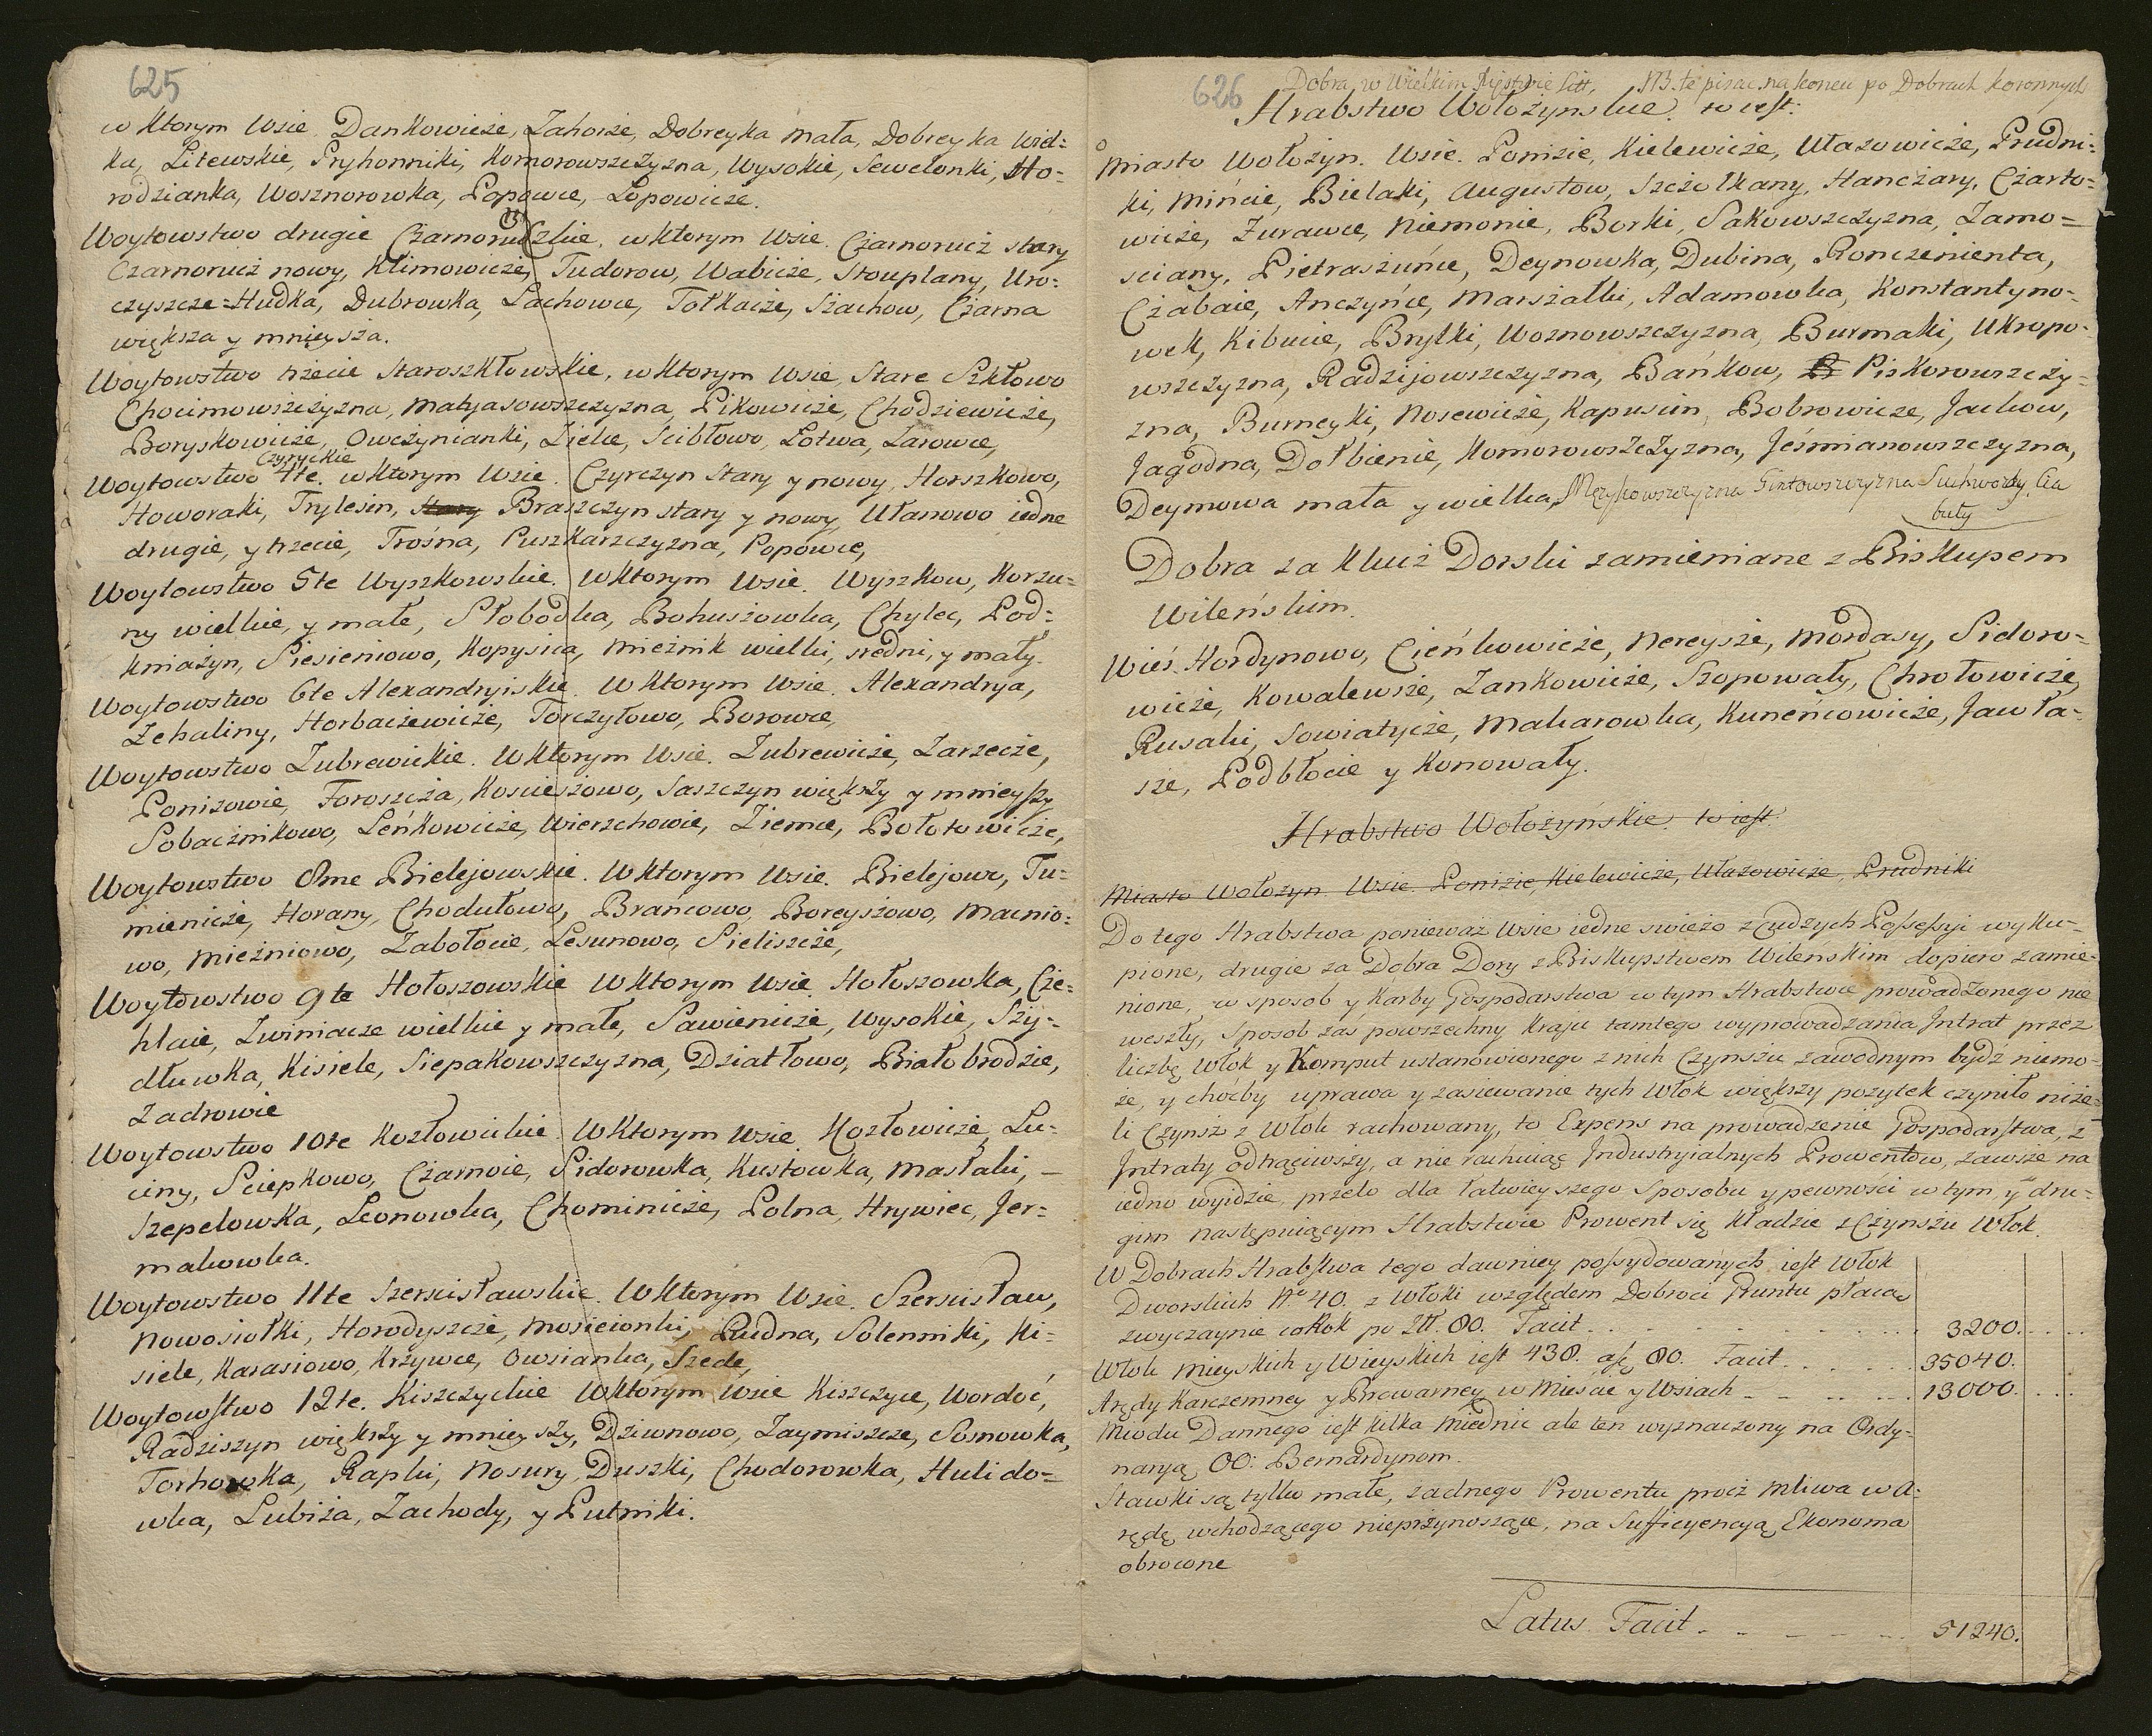 625
w ktorym Wsie. Dankowicze, Zahorże, Dobreyka mała, Dobreyka Wiel-
ka, Litewskie, Pryhonniki, Komorowszczyzna, Wysokie, Sewelonki, Ho-
rodzianka, Wosznorowka, Popowce, Łopowicze.
Woytowstwo drugie Czarnoruczkie, w ktorym Wsie. Czarnorucz stary
Czarnorucz nowy, Klimowicze, Tudorow, Wabicze, Stouplany, Uro-
czyszcze-Hudka, Dubrowka, Lachowce, Tołkacże, Szachow, Czarna
większa y mnieysza.
Woytowstwo trzecie Staroszkłowskie, w ktorym Wsie, Stare Szkłowo
Chocimowszczyzna, Matyasowszczyzna, Pikowicze, Chodziewicze,
Boryskowicze, Owczynianki, Ziele, Scibłowo, Łotwa, Larowce,
Czyryckie
Woytowstwo 4te. w ktorym Wsie. Czyrczyn Stary y nowy, Horszkowo,
Howoraki, Trylesin, Stary Braszczyn stary y nowy, Ułanowo iedne
drugie, y trzecie, Trośna, Puszkarzczyzna, Popowce,
Woytowstwo 5te Wyszkowskie. W ktorym Wsie. Wyszkow, Korzu-
ny wielkie, y małe, Słobodka, Bohuszowka, Chylec, Pod-
kniażyn, Siesieniowo, Kopysica, Mieżnik wielki, sredni, y mały.
Woytowstwo 6te Alexandryiskie. W ktorym Wsie. Alexandrya,
Zehaliny, Horbaczewicze, Torczyłowo, Borowce
Woytowstwo Zubrewickie. W ktorym Wsie. Zubrewicze, Zarzecze,
Ponizowie, Foroszcza, Koscieszowo, Saszczyn większy y mnieyszy
Sobacznikowo, Leńkowicze, Wierzchowie, Ziemce, Bołotowicze,
Woytowstwo 8me Bielejowskie. W ktorym Wsie. Bielejowo, Tu-
mienicze, Horany, Chodułowo, Brańcowo, Boreyszowo, Macnio-
wo, Mieżniowo, Zabołocie, Lesunowo, Sieliszcze,
Woytowstwo 9te Hołoszowskie W ktorym Wsie Hołoszowka, Cże-
hlaie, Zwiniacze wielkie y małe, Sawienicze, Wysokie, Szy-
dłuwka, Kisiele, Siepakowszczyzna, Dziatłowo, Białobrodzie,
Zadrowie
Woytowstwo 10te Kozłowickie. W ktorym Wsie Kozłowicze, Lu-
ciny, Sciepkowo, Czarncie, Sidorowka, Kustowka, Masłaki, —
Szepelowka, Leonowka, Chominicze, Polna, Hrywiec, Jer-
makowka.
Woytowstwo 11te Szerscisławskie. W ktorym Wsie. Szerscisław,
Nowosiołki, Horodyszcze, Mosieionki, Ludna, Solenniki, Ki-
siele, Karasiowo, Krzywce, Owsianka, Szede,
Woytowstwo 12te. Kiszczyckie W ktorym Wsie Kiszczyce, Wordoć,
Radziszyn większy y mnieyszy, Dziwnowo, Zaymiszcze, Sosnowka,
Torhowka, Rapki, Nosury, Duszki, Chodorowka, Hulido-
wka, Lubiża, Zachody, y Putniki.
626 Dobra w Wielkim Xięstwie Litt. NB. te pisac na koncu po Dobrach koronnych
Hrabstwo Wołożynskie. to iest.
Miasto Wołożyn. Wsie. Ponizie, Kielewicze, Ułazowicze, Prudni-
ki, Mińcie, Bielaki, Augustow, Szczołkany, Hanczary, Czarto-
wicze, Zurawce, Niemonie, Borki, Sakowszczyzna, Zamo-
sciany, Pietraszuńce, Deynowka, Dubina, Ronczenienta,
Czabaie, Anczyńce, Marszałki, Adamowka, Konstantyno-
wek, Kibucie, Brylki, Woznowszczyzna, Burmaki, Ukropo-
wszczyzna, Radzijowszczyzna, Bańkow, Piskorowszczy-
zna, Burneyki, Nosewicze, Kapuscin, Bobrowicze, Jackow,
Jagodna, Dołbienie, Komorowszczyzna, Jeśmianowszczyzna,
Deymowa mała y wielka, Mezykowszczyzna Gintowszczyzna Suchwozdy, Cia
buty
Dobra za klucz Dorski zamieniane z Biskupem
Wileńskim.
Wieś. Hordynowo, Cieńkowicze, Nereysze, Mordasy, Sidoro-
wicze, Kowalewsze, Zankowicze, Szopowały, Chrołowicze
Rusaki, Sowiatycze, Makarowka, Kuneńcowicze, Jawła-
sze, Podbłocie y Konowały.
Hrabstwo Wołożyńskie. to iest.
Miasto Wołożyn Wsie. Ponizie, Kielewicze, Ułazowicze, Prudniki
Do tego Hrabstwa ponieważ Wsie iedne swieżo z Cudzych Possessyi wyku-
pione, drugie za Dobra Dory z Biskupstwem Wileńskim dopiero zamie-
nione, w sposob y karby Gospodarstwa w tym Hrabstwie prowadzonego nie
weszły, Sposob zaś powszechny kraju tamtego wyprowadzania Intrat przez
liczbę Włok y Komput ustanowionego z nich Czynszu zawodnym bydź niemo-
że, y choćby uprawa y zasiewanie tych Włok większy pożytek czyniło niże-
li Czynsz z Włok rachowany, to Expens na prowadzenie Gospodarstwa, z
Intraty odtrąciwszy, a nie rachuiąc Industryialnych Prowentow, zawsze na
iedno wyidzie, przeto dla łatwieyszego Sposobu y pewności w tym, y dru-
gim następuiącym Hrabstwie Prowent się kładzie z Czynszu Włok.
W Dobrach Hrabstwa tego dawniey possydowanych iest Włok
Dworskich No 40. z Włoki względem Dobroci Gruntu płacą
zwyczaynie co Rok po Złł. 80. Facit . . . . . . . . 3200.
Włok Mieyskich y Wieyskich iest 438. a 80. Facit . . . . . 35040.
Arędy Karczemney y Browarney w Mieście y Wsiach . . . . 13000.
Miodu Dannego iest kilka Miednic ale ten wyznaczony na Ordy-
naryą OO: Bernardynom.
Stawki są tylko małe, żadnego Prowentu procz mliwa w A-
rędę wchodzącego nieprzynoszące, na Sufficyencyą Ekonoma
obrocone
Latus Facit . . . . . 51240.